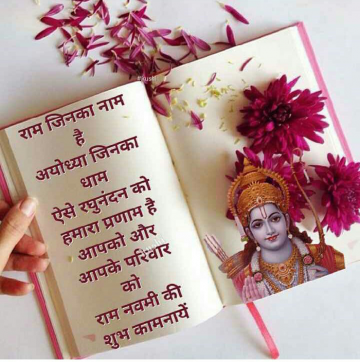 राम जिनका नाम
है
अयोध्या जिनका
धाम
ऐसे रघुनंदन को
हमारा प्रणाम है
आपको और
आपके परिवार
को
राम नवमी की
शुभ कामनायें